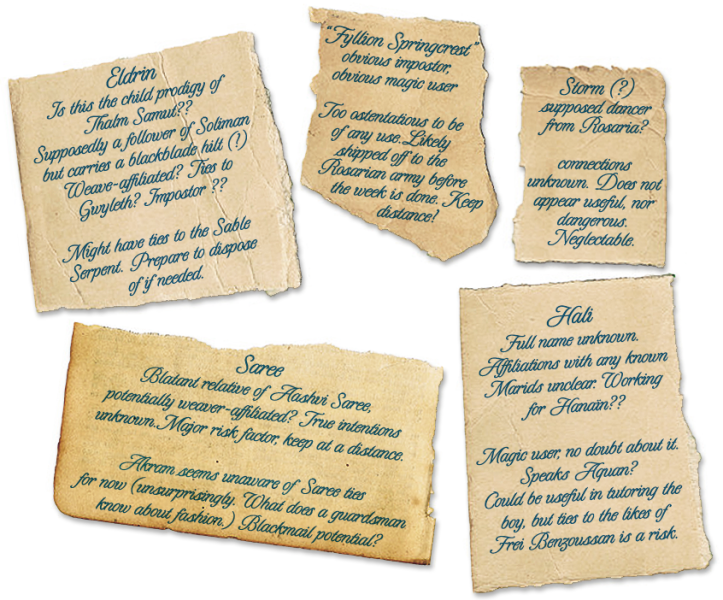 Eldrin
Is this the child prodigy of
Thalm Samut??
Supposedly a follower of Soliman
but carries a blackblade hilt (!)
Weave-affiliated? Ties to
Gwyleth? Impostor ??
Might have ties to the Sable
Serpent. Prepare to dispose
of if needed.
"Fyllion Springcrest"
obvious impostor,
obvious magic user
Too ostentatious to be
of any use. Likely
shipped off to the
Rosarian army before
the week is done. Keep
distance!
Storm (?)
supposed dancer
from Rosaria?
connections
unknown. Does not
appear useful, nor
dangerous.
Neglectable.
Saree
Blatant relative of Aashvi Saree,
potentially weaver-affiliated? True intentions
unknown. Major risk factor, keep at a distance.
Akram seems unaware of Saree ties
for now (unsurprisingly. What does a guardsman
know about fashion.) Blackmail potential?
Hali
Full name unknown.
Affiliations with any known
Marids unclear. Working
for Hanaïn??
Magic user, no doubt about it.
Speaks Aquan?
Could be useful in tutoring the
boy, but ties to the likes of
Frei Benzoussan is a risk.